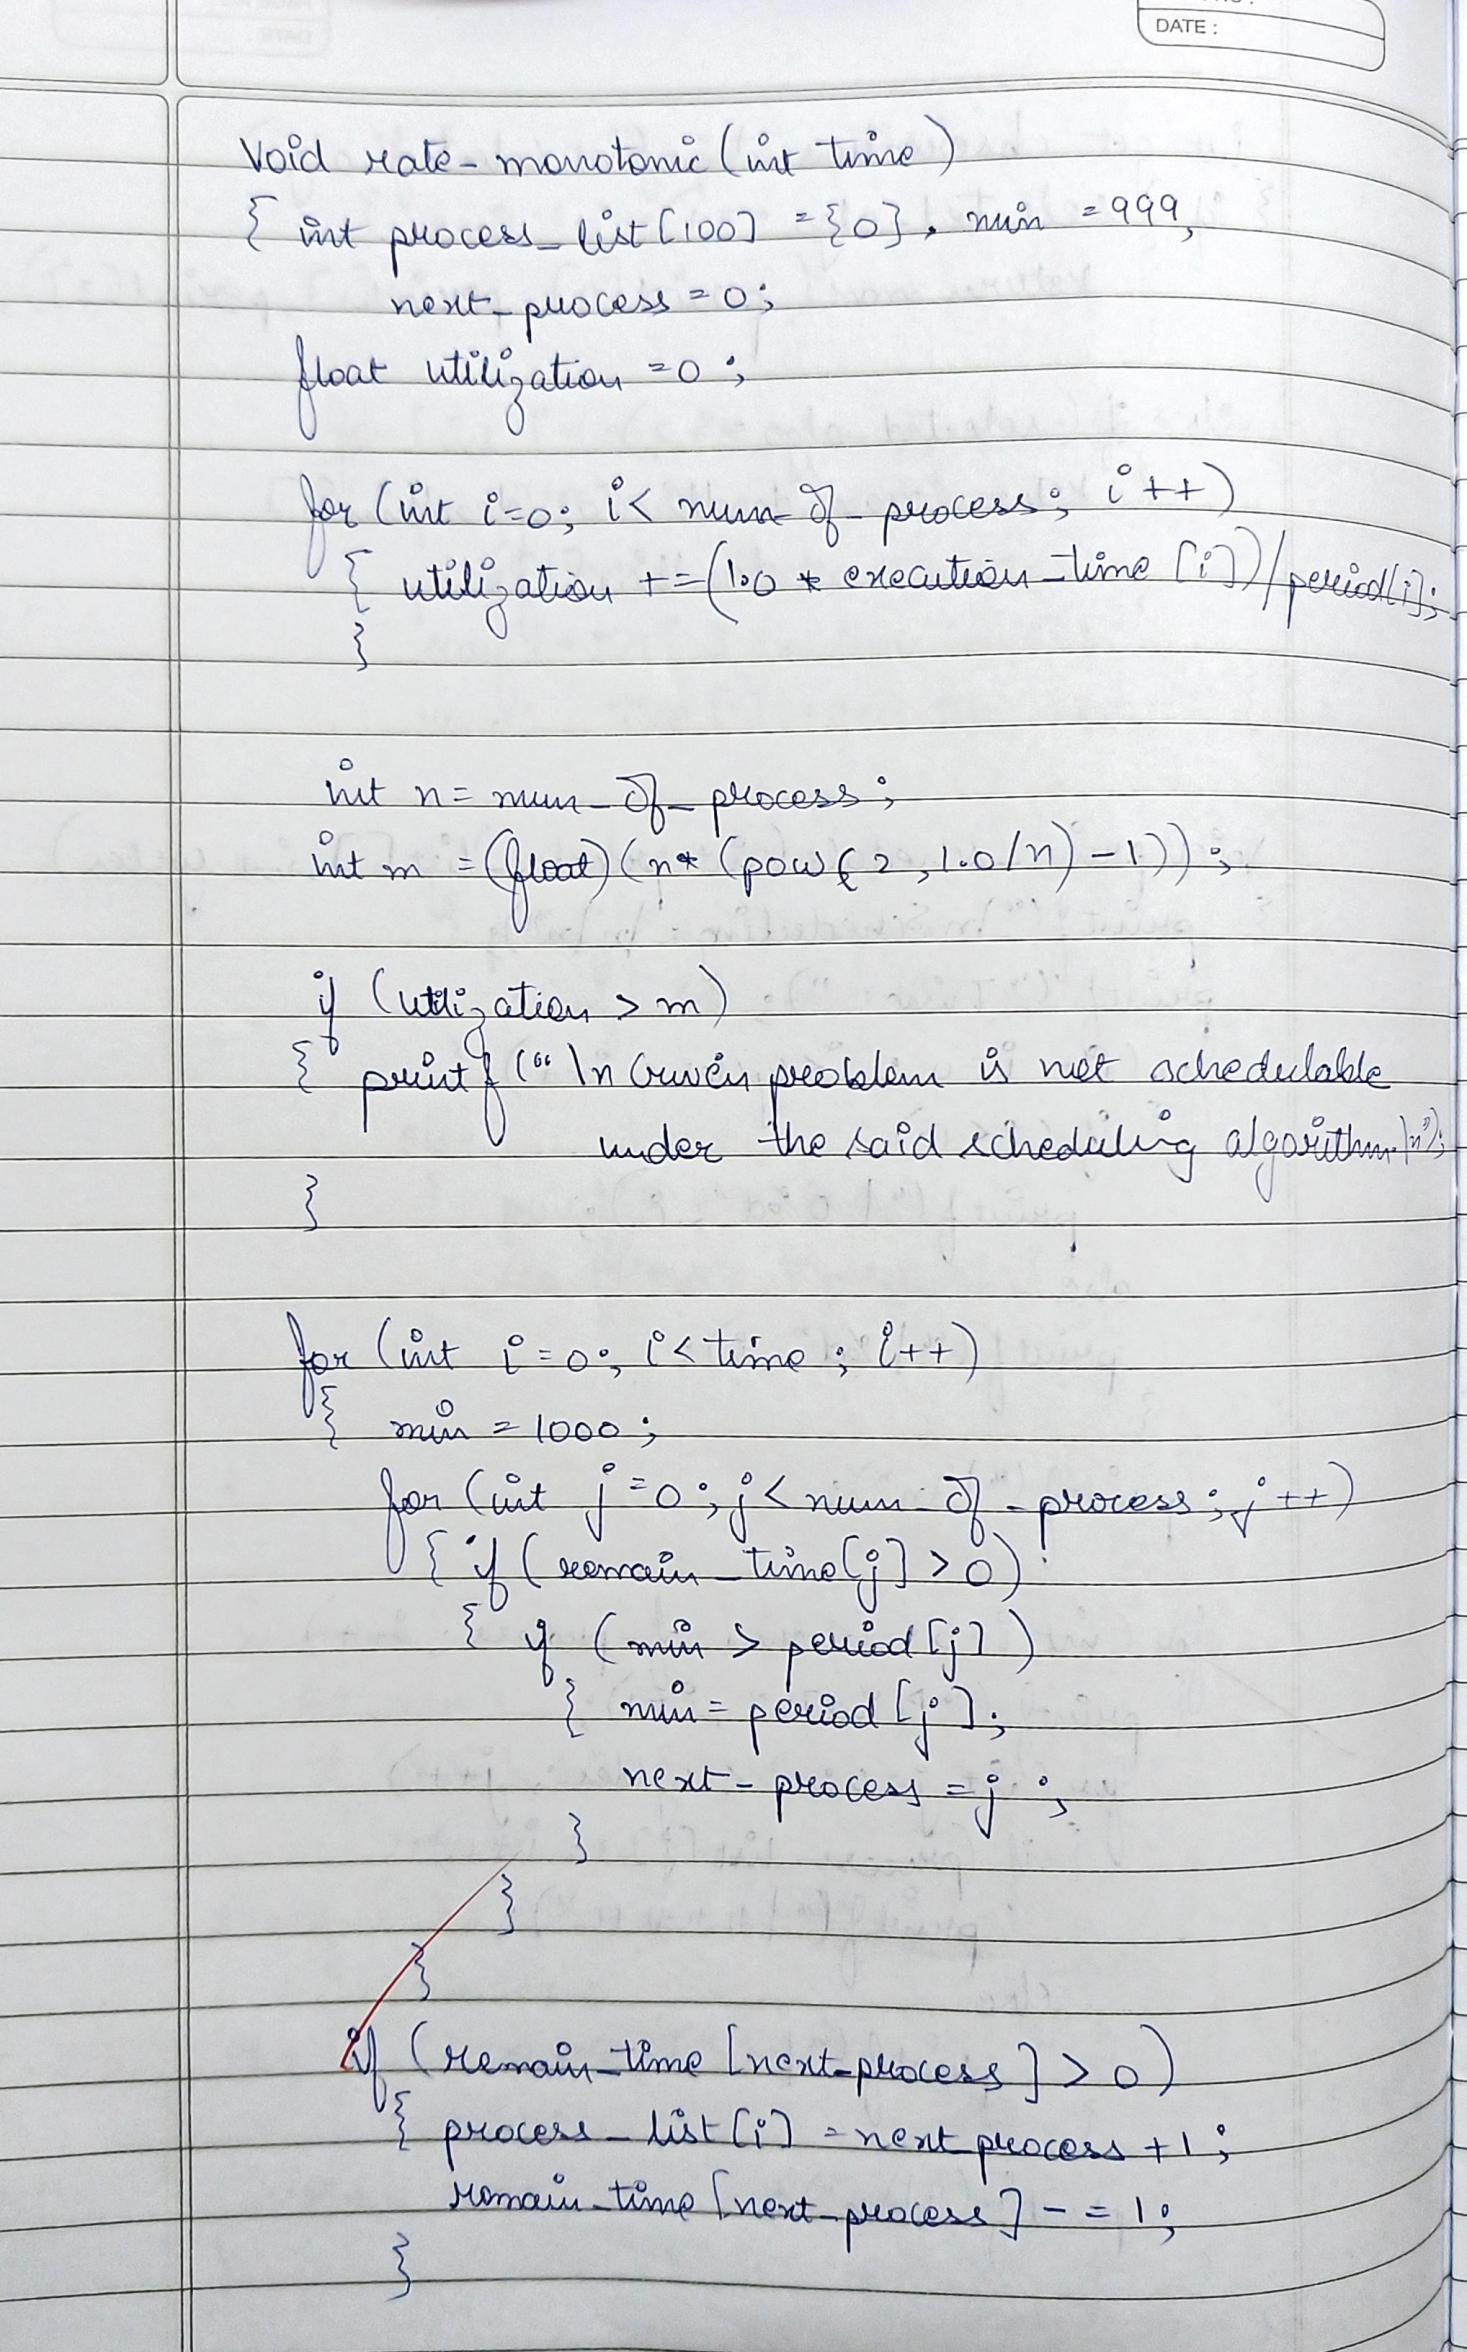 DATE :
Void rate_monotonic (int time)
{ int process_list [100] = {0}, min = 999,
next_process = 0;
float utilization = 0 ;
for (int i=0; i< num_of_process; i++)
{ utilization +=(1.0 * execution_time [i])/period[i];
}
int n= num_of_process ;
int m = (float) (n* (pow(2, 1.0/n) - 1)) ;
if (utilization > m)
{ printf (" \n Given problem is not schedulable
under the said scheduling algorithm.\n");
}
for (int i=0; i< time ; i++)
{ min = 1000 ;
for (int j=0 ; j< num_of_process ; j++)
{ if (remain_time[j] > 0)
{ if (min > period [j])
{ min = period [j];
next_process = j ;
}
}
}
if (remain_time [next_process] > 0)
{ process_list [i] = next_process +1 ;
remain_time [next_process] -= 1;
}